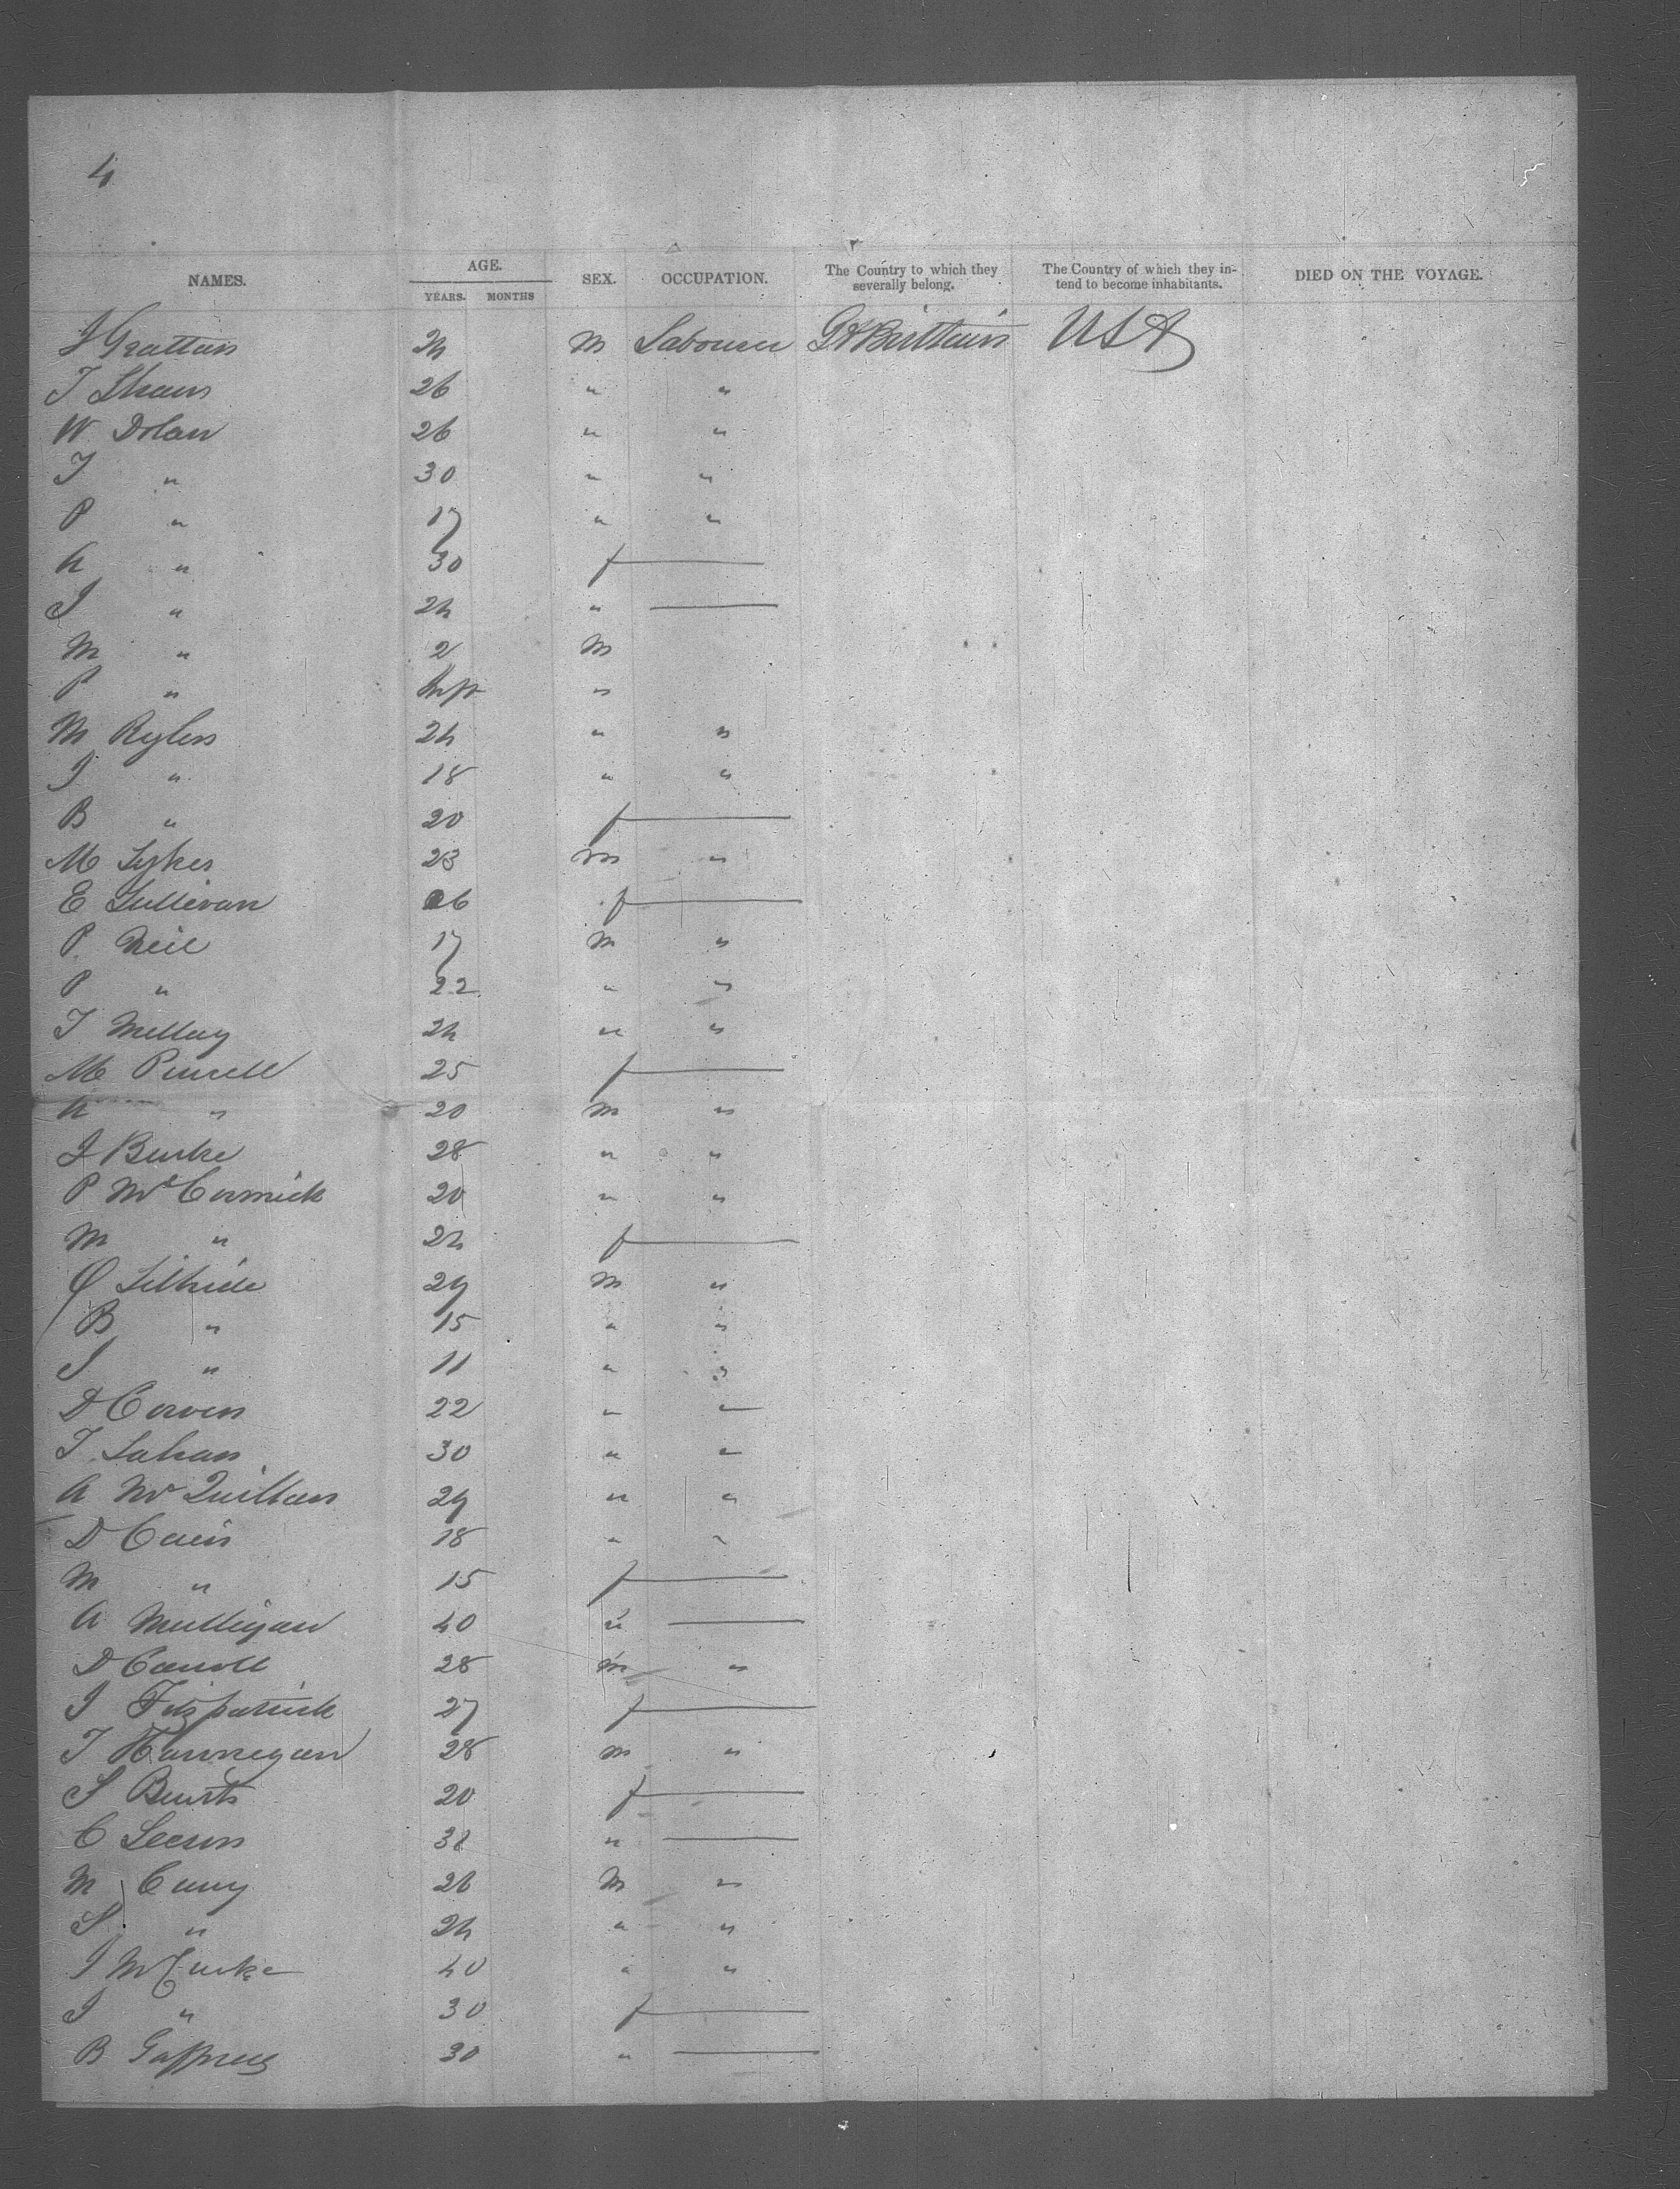 4
NAMES. AGE. YEARS. MONTHS SEX. OCCUPATION. The Country to which they severally belong. The Country of which they intend to become inhabitants. DIED ON THE VOYAGE.
J Grattan 24 M Labourer Gt Brittain USA
T 26 " "
W. Dolan 26 " "
J " 30 " "
P " 17 " "
A " 30 f
J " 24 "
M " 2 M
P " Inft "
M 24 " "
J " 18 " "
B " 20 f
M Sykes 23 m "
E Sullivan 26 f
P. Neil 17 M "
P " 22 " "
T 24 " "
M 25 f
A " 20 M "
J Burke 28 " "
P McCormick 20 " "
M " 24 f
29 M "
B " 15 " "
J " 11 " "
D 22 " "
T 30 " "
A McQuillan 29 " "
D Cain 18 " "
M " 15 f
A Mulligan 40 "
D Carroll 28 m "
J Fitzpatrick 27 f
T Hannegan 28 m "
S 20 f
C 
M 26 M "
S " 24 " "
J 40 " "
J " 30 f
B 30 "